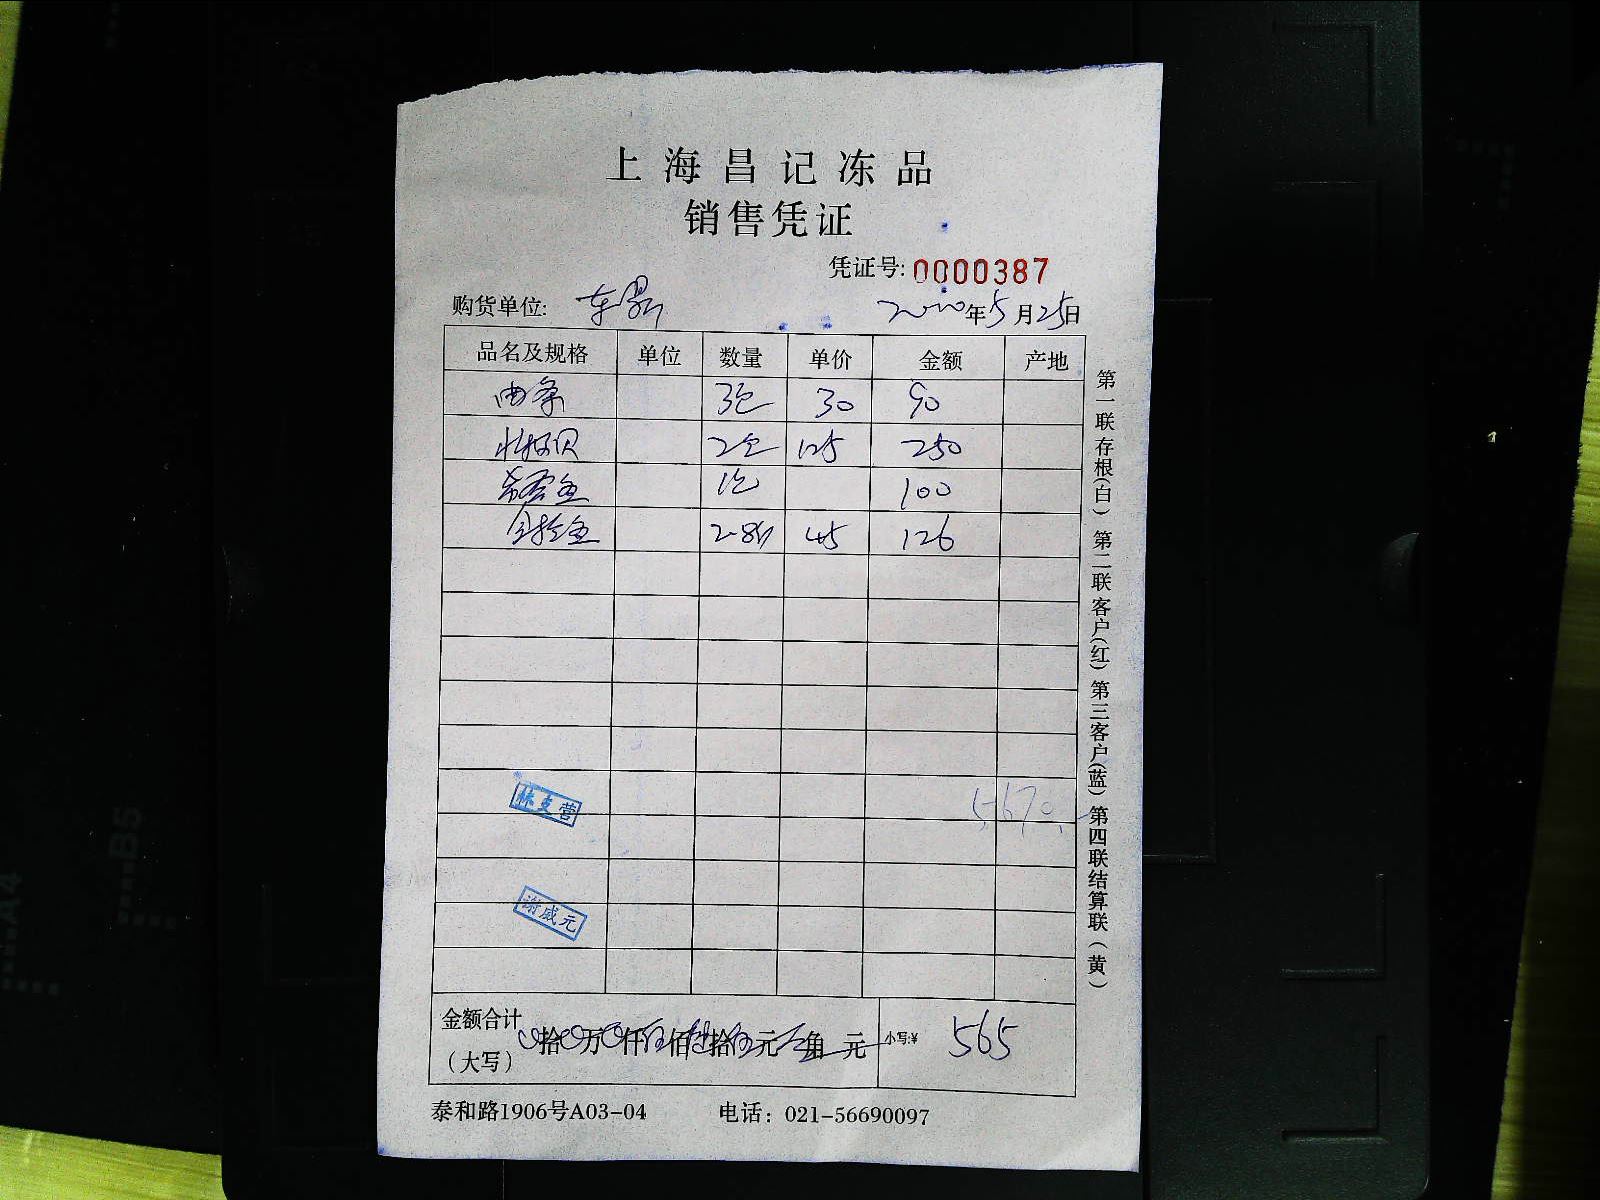 上海昌记冻品
销售凭证
凭证号: 0000387
购货单位: 东昇 2020年5月25日
品名及规格 单位 数量 单价 金额 产地
3包 30 90
2包 125 250
1包 100
2.8斤 45 126
5670.
林支营
谢威元
金额合计(大写) 0拾0万0仟伍佰陆拾伍元 角 元 小写:¥ 565
泰和路1906号A03-04 电话: 021-56690097
第一联存根(白) 第二联客户(红) 第三客户(蓝) 第四联结算联(黄)